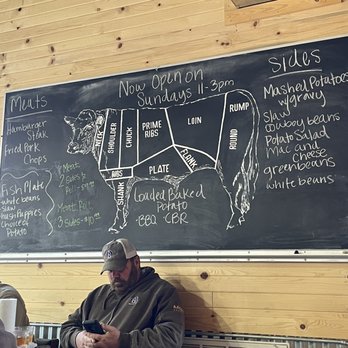 Meats
Hamburger
Steak
Fried Pork
Chops
Fish Plate
white beans
slaw
Hush Puppies
Choice of
Potato
Meat
Sides
Meat
3 Sides
Now Open on
Sundays 11-3pm
NECK
SHOULDER
CHUCK
PRIME
RIBS
LOIN
RUMP
ROUND
FLANK
PLATE
RIBS
SHANK
Loaded Baked
Potato
BBQ CBR
Sides
Mashed Potatoes
w/gravy
Slaw
cowboy beans
Potato Salad
Mac and
cheese
greenbeans
white beans